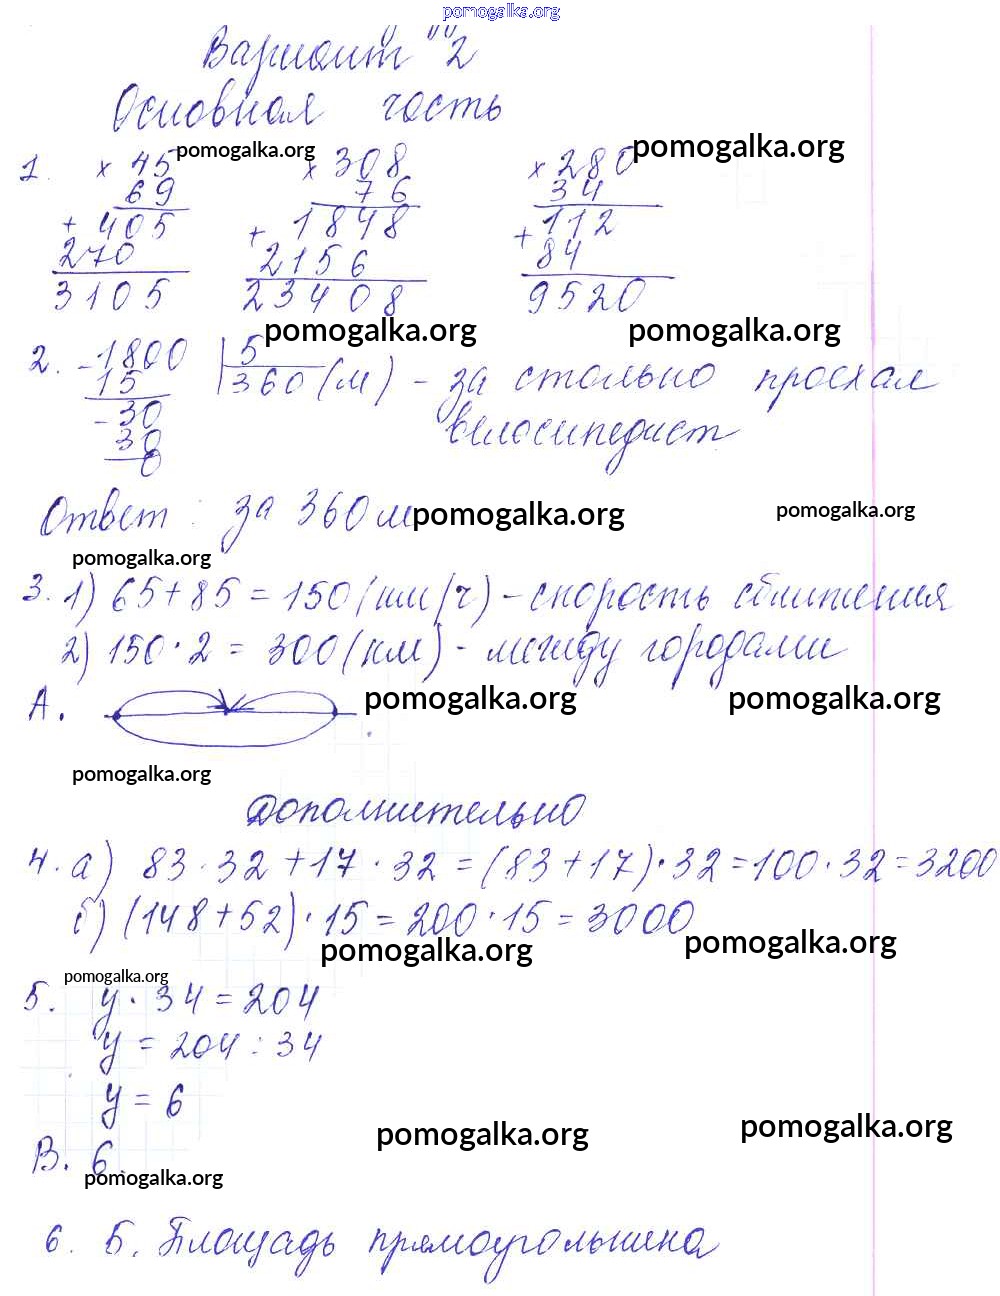 pomogalka.org
Вариант "2"
Основная часть
1. × 45 pomogalka.org × 308 × 280 pomogalka.org
69 76 34
+ 405 + 1848 + 112
270 2156 84
3105 23408 9520
pomogalka.org pomogalka.org
2. - 1800 | 5
15 360 (м) - за столько проехал
- 30 велосипедист
30
0
Ответ: за 360 м pomogalka.org pomogalka.org
pomogalka.org
3. 1) 65 + 85 = 150 (км/ч) - скорость сближения
2) 150 · 2 = 300 (км) - между городами
А. pomogalka.org pomogalka.org
pomogalka.org
Дополнительно
4. а) 83 · 32 + 17 · 32 = (83 + 17) · 32 = 100 · 32 = 3200
б) (148 + 52) · 15 = 200 · 15 = 3000
pomogalka.org pomogalka.org
pomogalka.org
5. у · 34 = 204
у = 204 : 34
у = 6
pomogalka.org pomogalka.org
В. 6
pomogalka.org
6. Б. Площадь прямоугольника